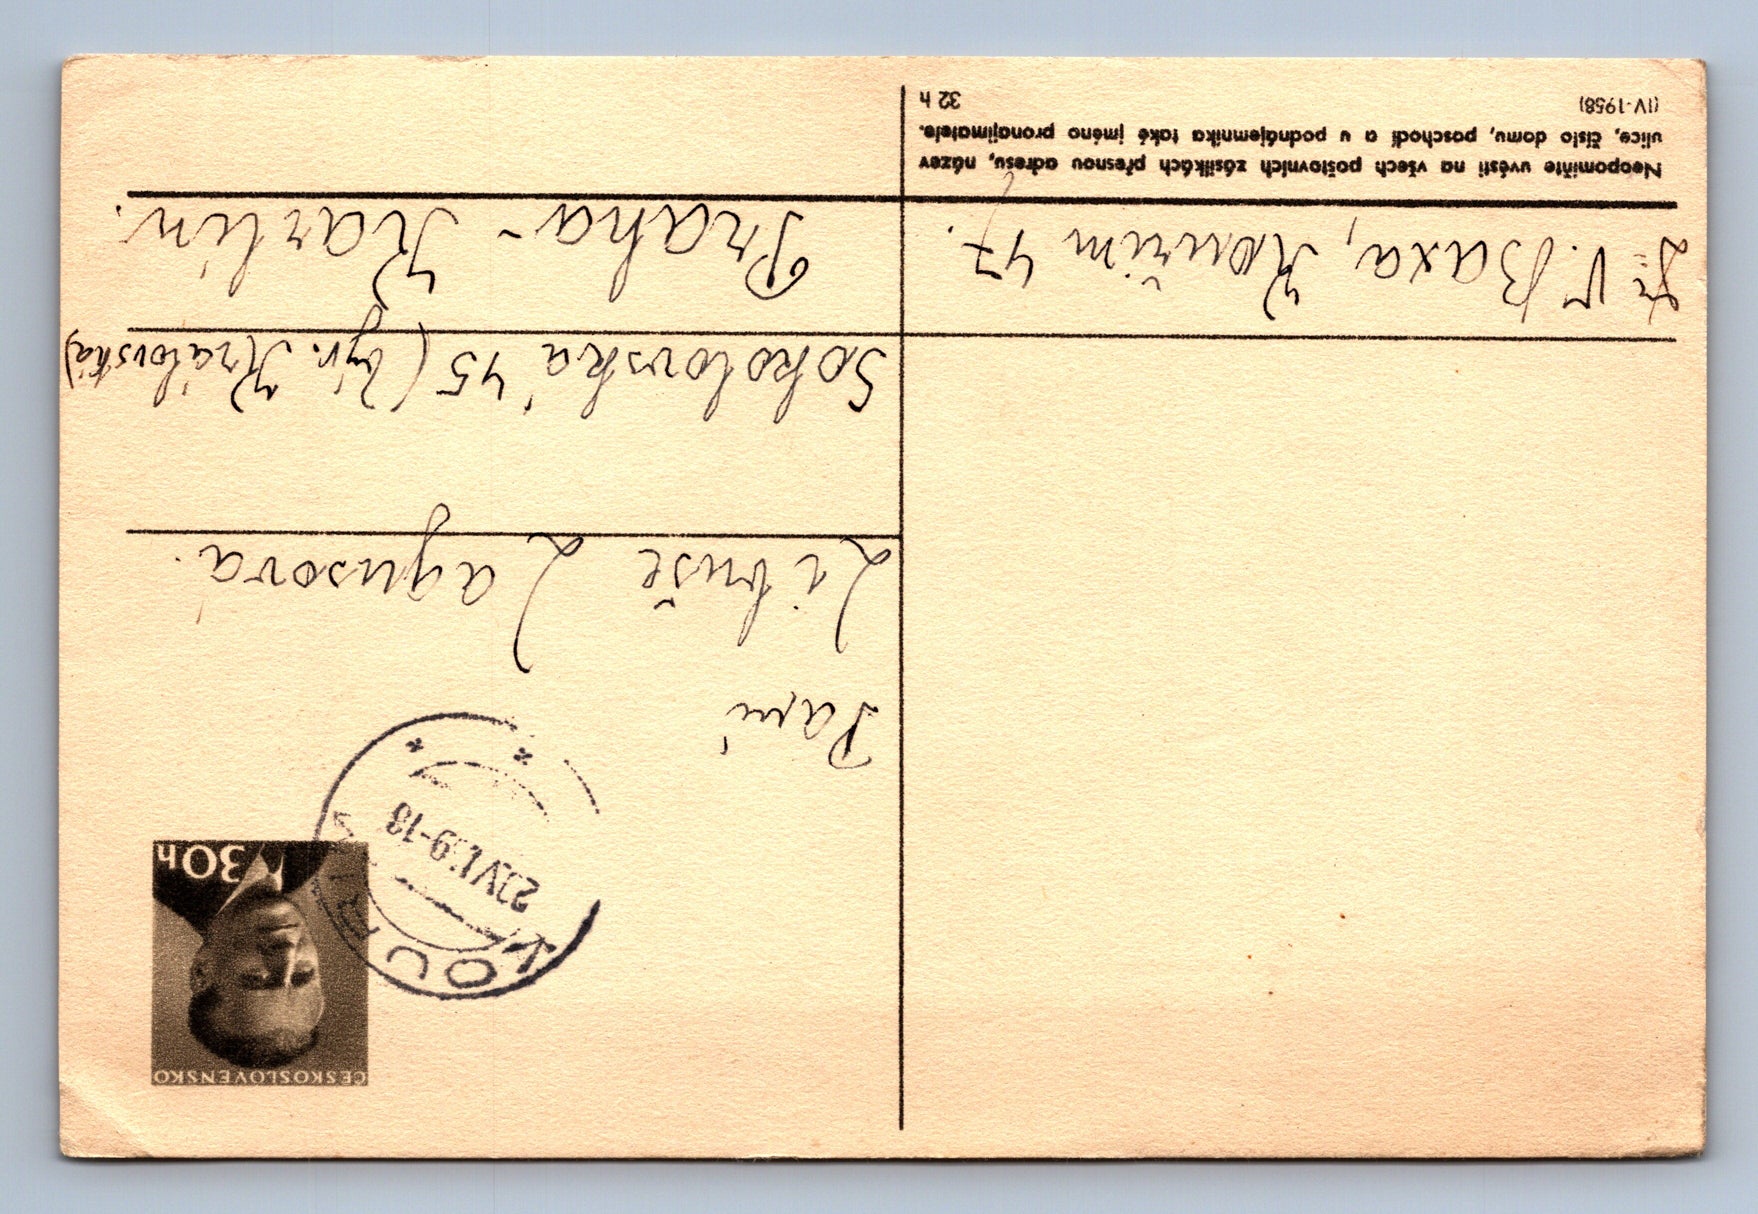 ČESKOSLOVENSKO
30h
KOUŘIM
9-18
Paní
Libuše Lagusová.
Sokolovská 45 (býv. Královská)
Praha - Karlín.
Dr V. Baxa, Kouřim 47.
Neopomiňte uvésti na všech poštovních zásilkách přesnou adresu, název
ulice, číslo domu, poschodí a u podnájemníka také jméno pronajímatele.
(IV-1958)
32 h